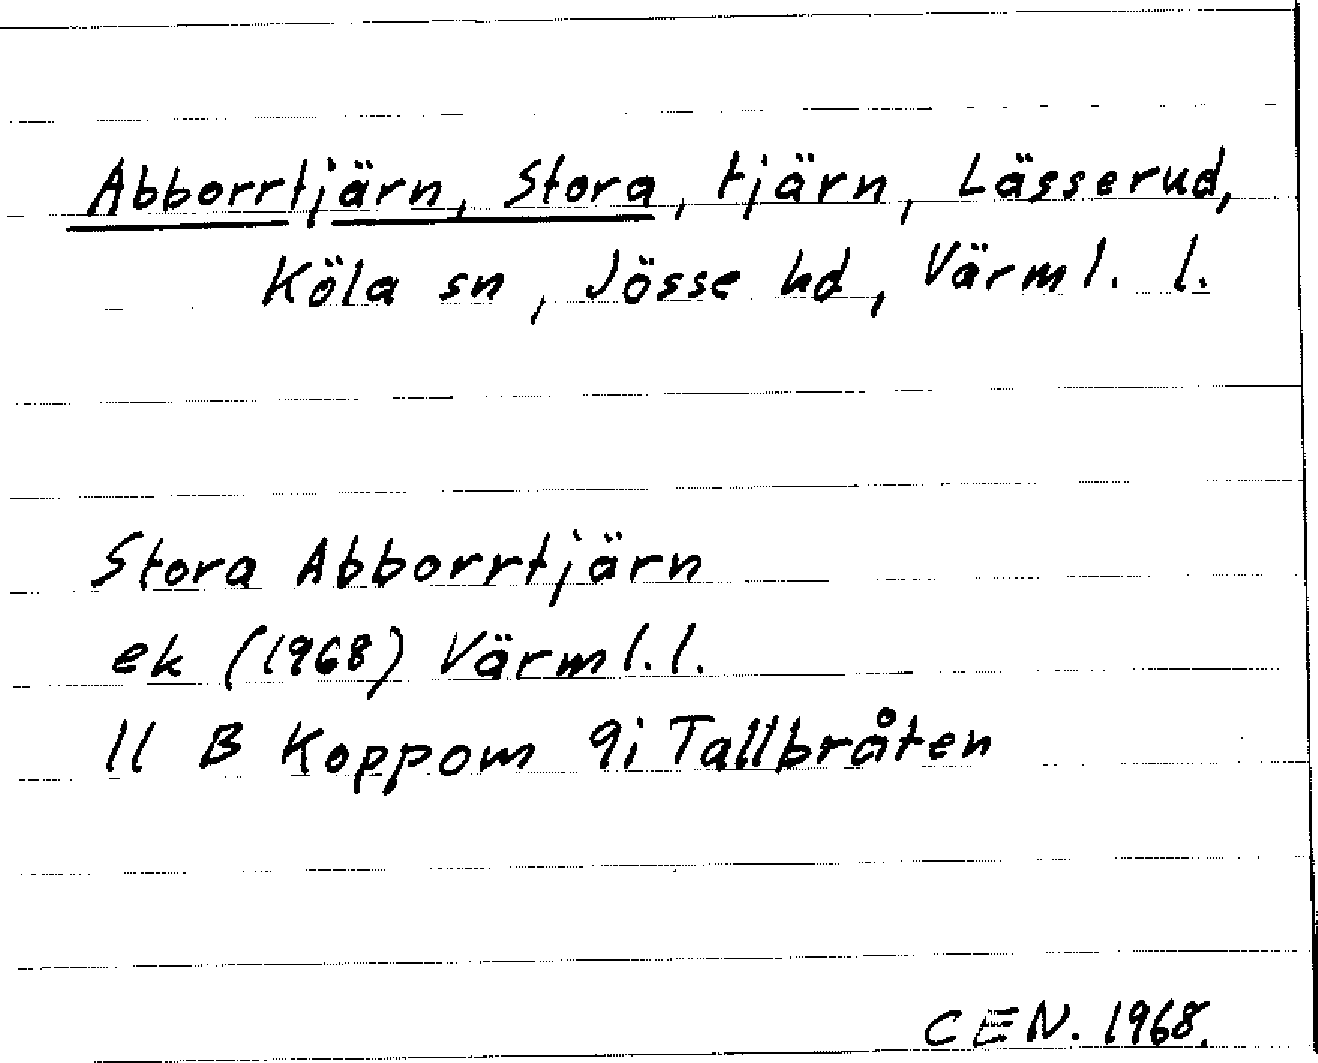 Abborrtjärn, Stora, tjärn, Lässerud,
Köla sn, Jösse hd, Värml. l.
Stora Abborrtjärn
ek (1968) Värml. l.
11 B Koppom 9i Tallbråten
CEN. 1968.